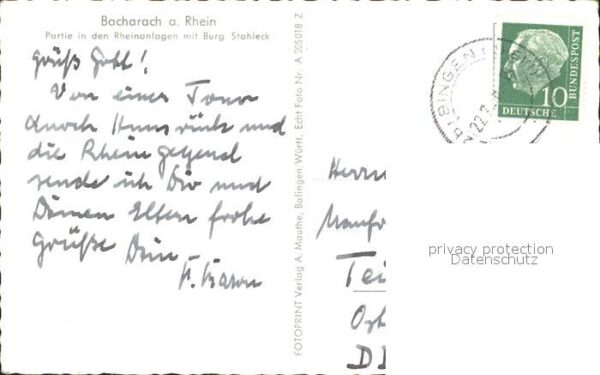 Bacharach a. Rhein
Partie in den Rheinanlagen mit Burg Stahleck
Grüß Gott!
Von einer Tour
durch Hunsrück und
die Rheingegend
sende ich Dir und
Deinen Eltern frohe
Grüße Dein
F.
FOTOPRINT Verlag A. Mauthe, Balingen, Württ. Edit Foto Nr. A 205018 Z
BINGEN
22.
10
DEUTSCHE
BUNDESPOST
Herrn
Manfr
Tei
D
privacy protection
Datenschutz